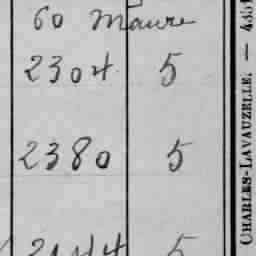 60 Maure
2304 5
2380 5
5
CHARLES-LAVAUZELLE. —